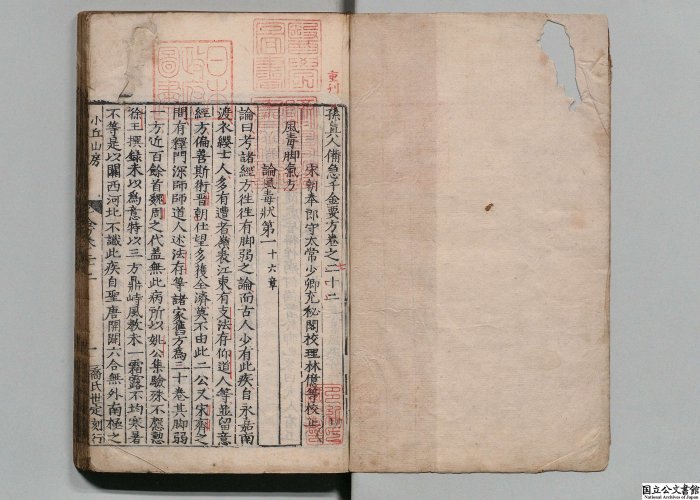 重刊
孫眞人備急千金要方卷之二十二
宋朝奉郎守太常少卿充秘閣校理林億等校正
風毒脚氣方
論風毒狀第一十六章
論曰考諸經方往往有脚弱之論而古人少有此疾自永嘉南
渡衣纓士人多有遭者嶺表江東有支法存仰道人等並留意
經方偏善斯術晉朝仕望多獲全濟莫不由此二公又宋齊之
間有釋門深師師道人述法存等諸家舊方為三十卷其脚弱
一方近百餘首魏周之代蓋無此病所以姚公集驗殊不慇懃
徐王撰錄未以為意特以三方鼎峙風敎未一霜露不均寒暑
不等是以關西河北不識此疾自聖唐開闢六合無外南極之
小丘山房
一
喬氏世定刻行
国立公文書館
National Archives of Japan